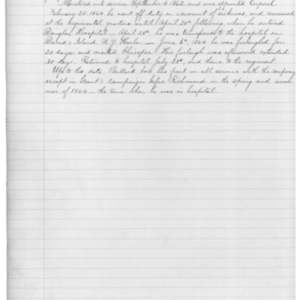 Mustered into service September 4, 1862 and was appointed Corporal.
February 28, 1864 he went off duty on account of sickness and remained
at the regimental quarters until April 20th following, when he entered
Douglas Hospital. April 28th, he was transferred to the hospital on
Island, N. Y. Harbor. June 8th, 1864 he was furloughed for
20 days and visited. His furlough was afterwards extended
30 days. Returned to hospital July 28th, and thence to the regiment.
Up to this date, Bullard took his part in all service with the company
except in Grant's campaign before Richmond in the spring and sum-
mer of 1864 - the time when he was in hospital.